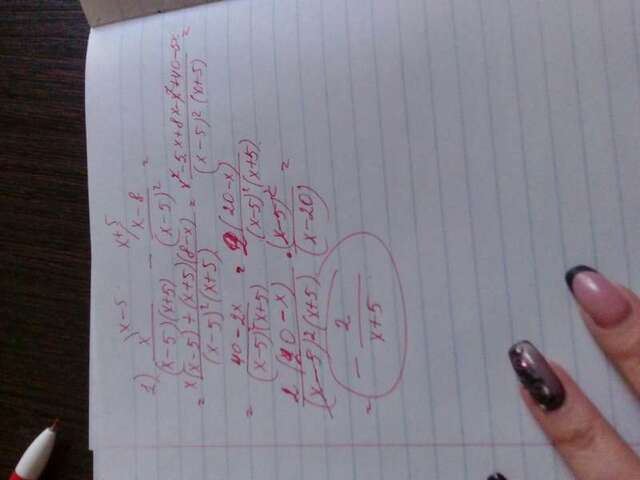 x-5 x+5
1) x/((x-5)(x+5)) - (x-8)/(x-5)² =
= (x(x-5)+(x+5)(8-x))/((x-5)²(x+5)) = (x²-5x+8x-x²+40-5x)/((x-5)²(x+5)) =
= (40-2x)/((x-5)²(x+5)) = 2(20-x)/((x-5)²(x+5))
2(20-x)/((x-5)²(x+5)) · (x-5)²/(x-20) =
= -2/(x+5)